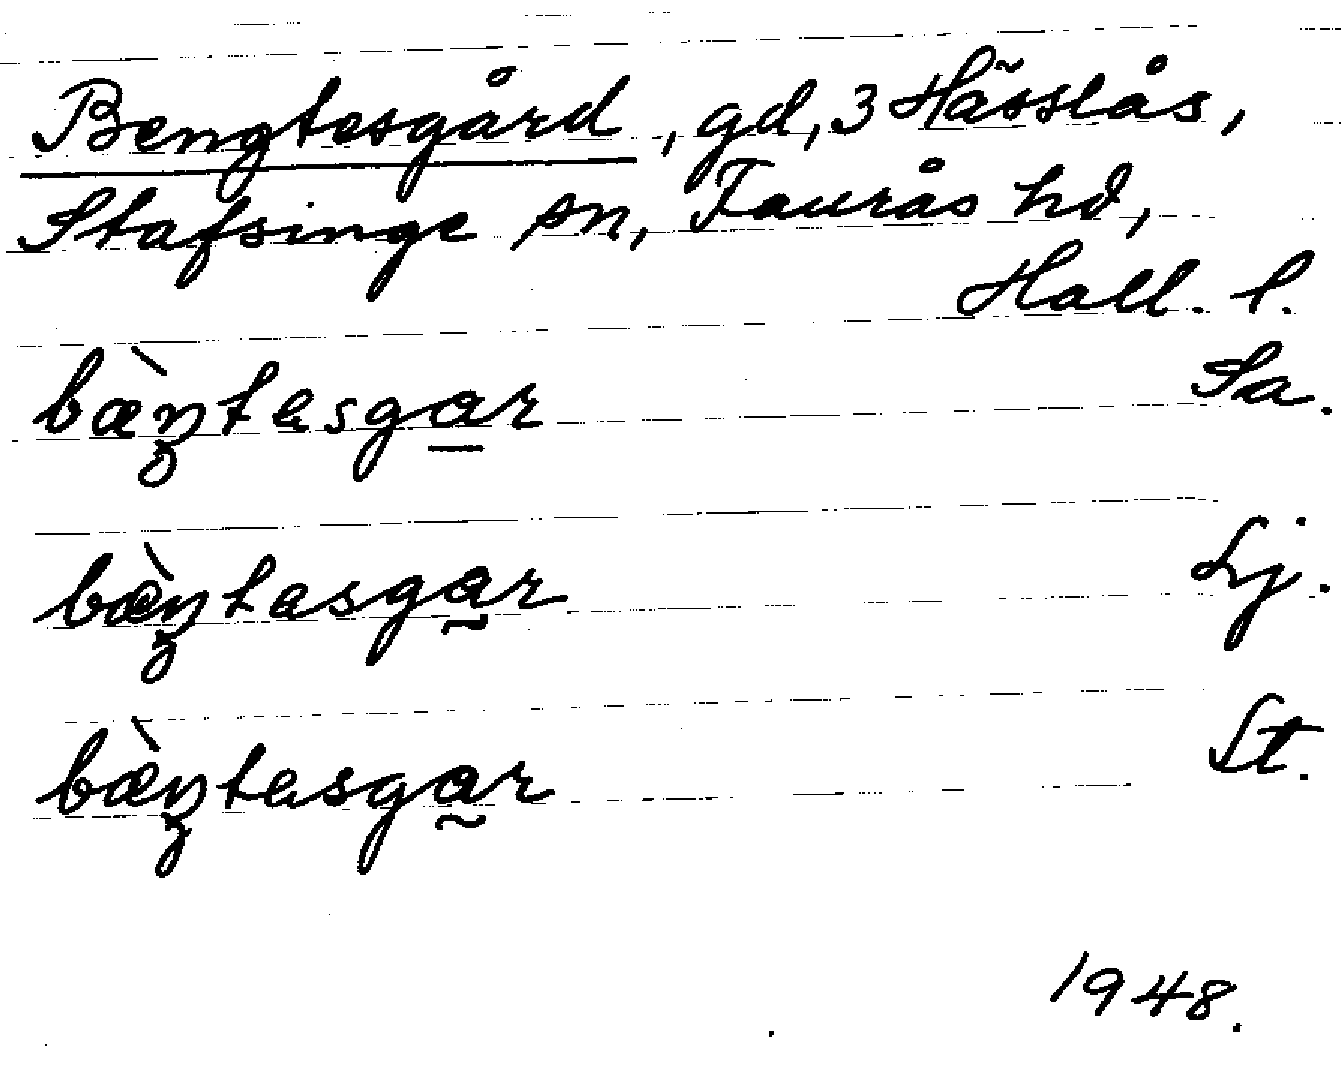 Bengtesgård, gd, 3 Hässlås,
Stafsinge sn, Faurås hd,
Hall. l.
bæ̀ŋtasgar Sa.
bæ̀ŋtasgar Lj.
bæ̀ŋtasgar St.
1948.